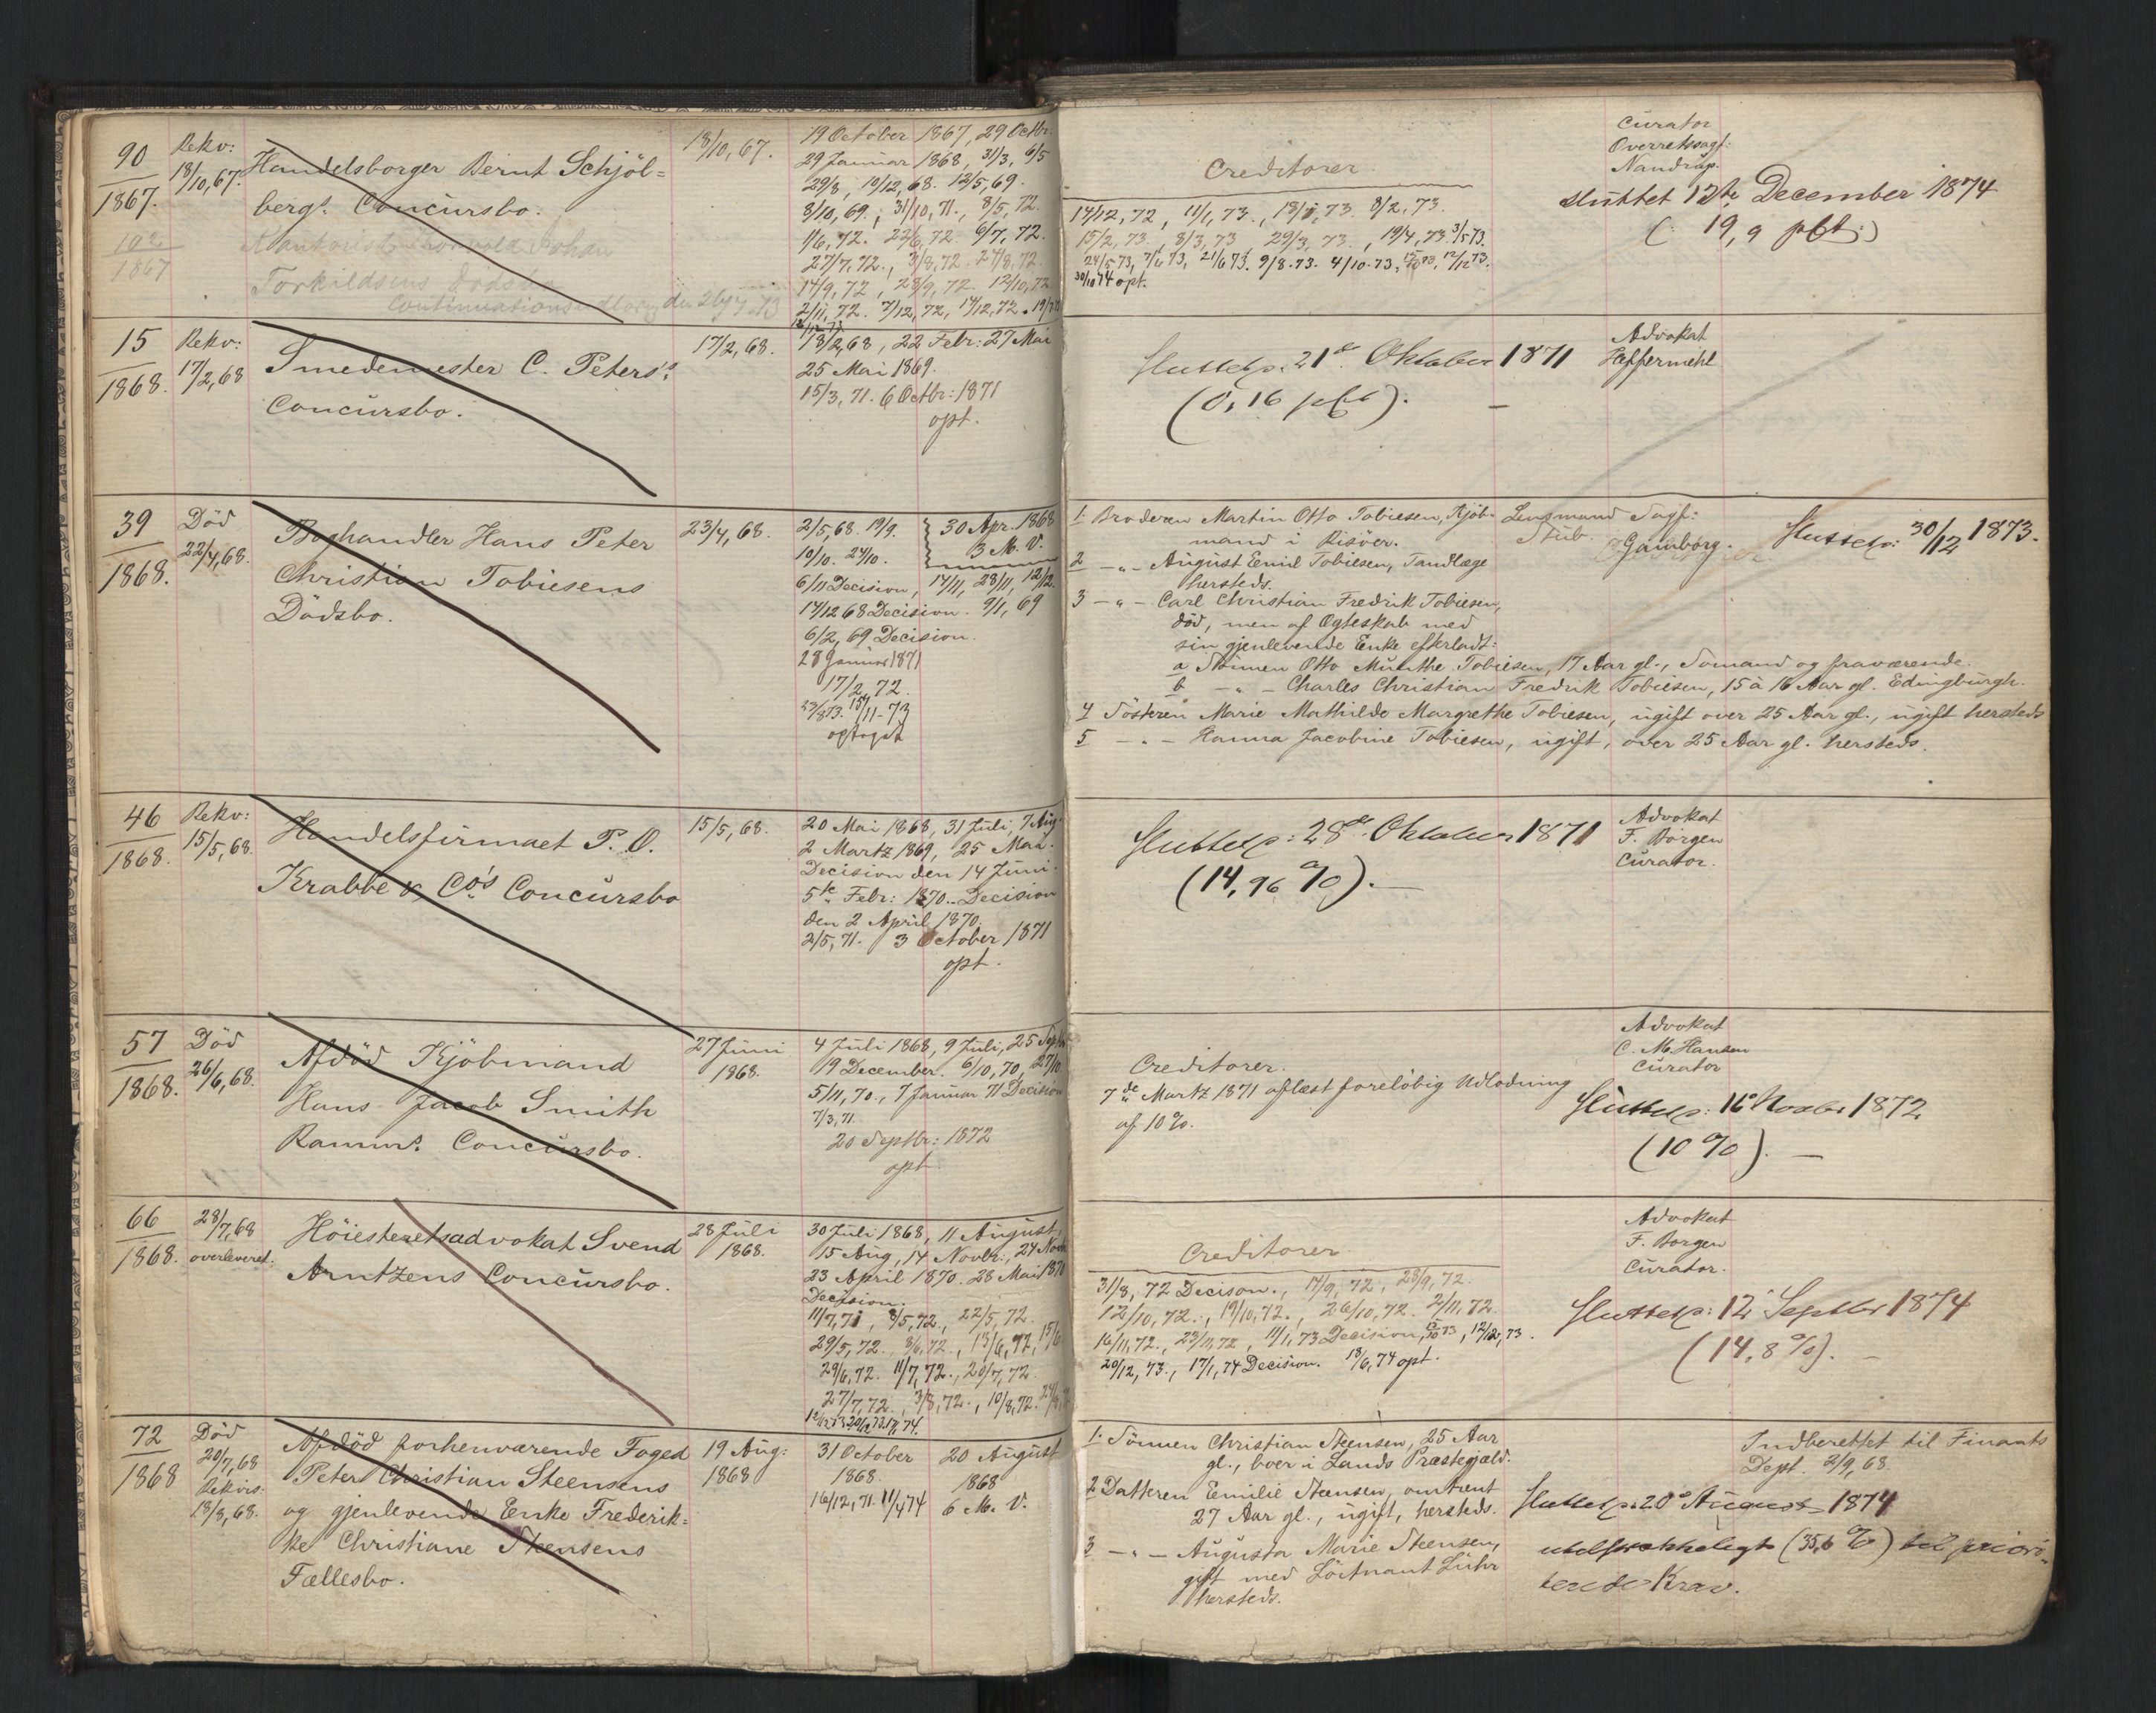 90
1867.
Rekv:
18/10, 67.
Handelsborger Bernt Schjöl=
bergs. Concursbo.
18/10, 67.
19 October 1867, 29 Octbr.
29 Januar 1868, 31/3, 6/5
29/8, 10/12, 68. 12/5, 69.
8/10, 69., 31/10, 71., 8/5, 72.
1/6, 72. 22/6, 72. 6/7, 72.
27/7, 72., 3/8, 72. 24/8, 72.
14/9, 72, 28/9, 72. 12/10, 72
2/11, 72. 7/12, 72, 14/12, 72.
Creditorer
14/12, 72, 11/1, 73., 18/1, 73. 8/2, 73.
15/2, 73. 8/3, 73, 29/3, 73., 19/4, 73. 3/5 73.
24/5 73, 7/6 73, 21/6 73. 9/8. 73. 4/10. 73., 12/12 73.
30/10 74 opt.
Curator
Overretssagf.
Nandrup.
Sluttet 12te December 1874
(: 19,9 pCt:)
102
1867
Kontorist Thorvald Johan
Torkildsens Dödsbo
15
1868.
Rekv:
17/2, 68
Smedemester C. Peters's
Concursbo.
17/2, 68.
18/2, 68, 22 Febr: 27 Mai
25 Mai 1869.
15/3, 71. 6 Octbr: 1871
opt.
Sluttet p: 21de Oktober 1871
(0,16 pCt).
Advokat
Heffermehl
39
1868.
Död
22/4, 68.
Boghandler Hans Peter
Christian Tobiesens
Dödsbo.
23/4, 68.
2/5, 68. 19/9.
10/10. 24/10.
30 Apr. 1868
3 M. V.
6/11 Decision, 14/11, 28/11, 12/12.
14/12 68 Decision. 9/1, 69
6/2, 69 Decision.
28 Januar 1871
17/2, 72.
23/8 73. 15/11 - 73
optaget
1. Broderen Martin Otto Tobiesen, Kjöb-
mand i Risöer.
2 -"- August Emil Tobiesen, Tandlæge
hersteds.
3 -"- Carl Christian Fredrik Tobiesen,
död, men af Ægteskab med
sin gjenlevende Enke efterladt:
a Sönnen Otto Munthe Tobiesen, 17 Aar gl., Sömand og fraværende.
b -"- Charles Christian Fredrik Tobiesen, 15 à 16 Aar gl. Edingburgh.
4 Sösteren Marie Mathilde Margrethe Tobiesen, ugift over 25 Aar gl., ugift hersteds
5 -"- Hanna Jacobine Tobiesen, ugift, over 25 Aar gl. hersteds.
Lensmand
Stub.
Sagf:
Gamborg.
Sluttet p: 30/12 1873.
46
1868.
Rekv:
15/5, 68.
Handelsfirmaet P. O.
Krabbe & Co's Concursbo
15/5, 68.
20 Mai 1868, 31 Juli, 7 Aug.
2 Martz 1869, 25 Mai.
Decision den 14 Juni.
5te Febr: 1870. Decision
den 2 April 1870.
2/5, 71. 3 October 1871
opt.
Sluttet p: 28de Oktober 1871
(14,96 %).
Advokat
F. Borgen
Curator.
57
1868.
Död
26/6, 68.
Afdöd Kjöbmand
Hans Jacob Smith
Ramms. Concursbo.
27 Juni
1868.
4 Juli 1868, 9 Juli, 25 Septb
19 December. 6/10, 70, 27/10
5/11, 70., 7 Januar 71 Decision
7/3, 71.
20 Septbr: 1872
opt
Creditorer.
7de Martz 1871 aflæst foreløbig Udlodning
af 10%.
Advokat
C. M. Hansen
Curator
Sluttet p: 16 Novbr 1872
(10 %).
66
1868.
28/7, 68
overleveret.
Höiesteretsadvokat Svend
Arntzens Concursbo.
28 Juli
1868.
30 Juli 1868, 11 August,
15 Aug, 14 Novbr., 24 Nov
23 April 1870. 28 Mai 1870
Decision.
11/7, 71, 8/5, 72., 22/5, 72.
29/5, 72., 8/6, 72., 13/6, 72, 15/6
29/6, 72. 11/7, 72., 20/7, 72.
27/7, 72., 3/8, 72., 10/8, 72. 24/8
Creditorer
31/8, 72 Decison., 14/9, 72., 28/9, 72.
12/10, 72., 19/10, 72., 26/10, 72. 2/11, 72.
16/11, 72., 23/11, 72, 11/1, 73 Decision, 73, 12/12, 73.
20/12, 73., 17/1, 74 Decision. 18/6, 74 opt.
Advokat
F. Borgen
Curator.
Sluttet p: 12 Septbr 1874
(14,8 %).
72
1868
Död
20/7, 68
Rekvis:
18/8, 68.
Afdöd forhenværende Foged
Peter Christian Steensens
og gjenlevende Enke Frederik=
ke Christiane Steensens
Fællesbo.
19 Aug:
1868
31 October
1868.
16/12, 71. 11/4, 74
20 August
1868
6 M. V.
1. Sönnen Christian Steensen, 25 Aar
gl., boer i Lands Præstegjæld.
2 Datteren Emilie Steensen, omtrent
27 Aar gl., ugift, hersteds.
3 -"- Augusta Marie Steensen,
gift med Löitnant Lühr
hersteds.
Indberettet til Finants
Dept. 2/9, 68.
Sluttet p: 20 August 1874
utilstrækkeligt (35,6 %) til priori-
terede Krav.